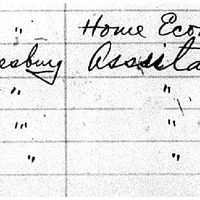 " Home Econ
esburg Assista
" "
" "
" "